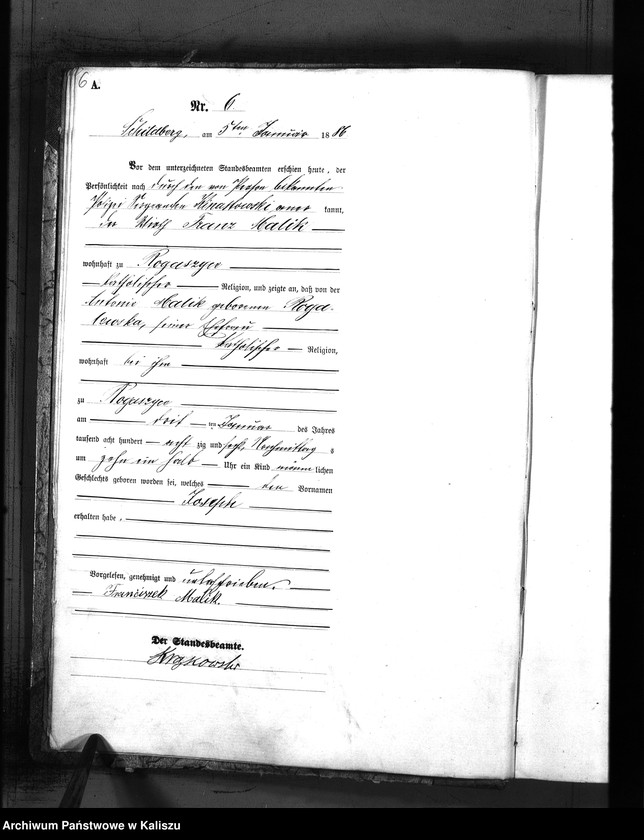 6 A.
Nr. 6
Schildberg, am 5ten Januar 1886
Vor dem unterzeichneten Standesbeamten erschien heute, der
Persönlichkeit nach durch den von Person bekannten
kannt,
der Wirth Franz Malik
wohnhaft zu Rogaszyce
katholischer Religion, und zeigte an, daß von der
Antonie Malik geborenen Roga-
lewska, seiner Ehefrau
katholischer Religion,
wohnhaft bei ihm
zu Rogaszyce
am drei ten Januar des Jahres
tausend acht hundert acht zig und sechs, Vormittag s
um zehn ein halb Uhr ein Kind männlichen
Geschlechts geboren worden sei, welches den Vornamen
Joseph
erhalten habe.
Vorgelesen, genehmigt und unterschrieben.
Franciszek Malik.
Der Standesbeamte.
Archiwum Państwowe w Kaliszu